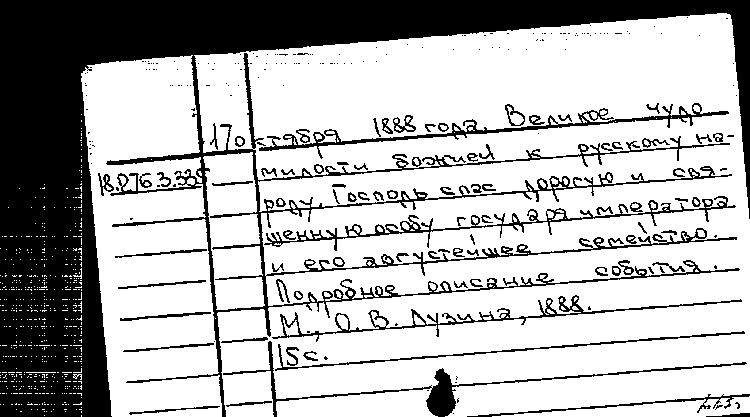 17 октября 1888 года. Великое чудо
18.276.3.335
милости божией к русскому на-
роду. Господь спас дорогую и свя-
щенную особу государя императора
и его августейшее семейство.
Подробное описание события.
М., О. В. Лузина, 1888.
15с.